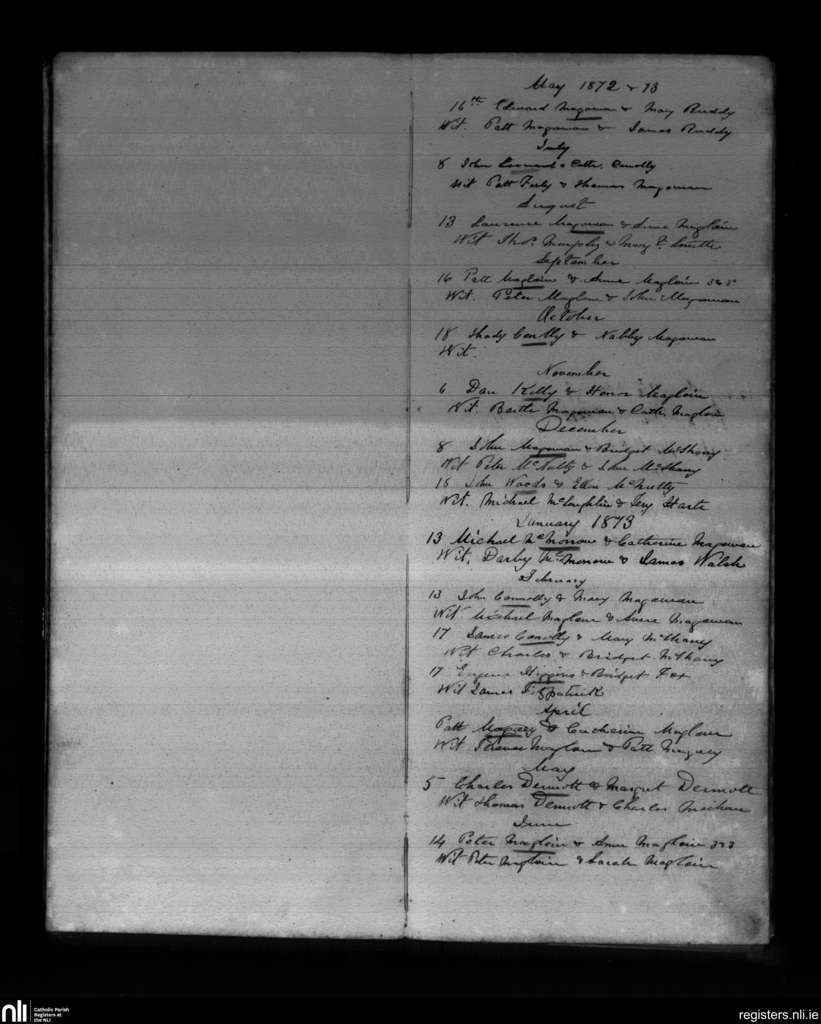 May 1872 & 73
16th Edward Magowan & Mary Ruddy
Wit. Patt Magowan & James Ruddy
July
8 John Leonard & Cath. Conolly
Wit Patt Feely & Thomas Magowan
August
13 Laurence Magowan & Anne Magloin
Wit Thos. Murphy & Mary
September
16 Patt Magloin & Anne Magloin
Wit. Peter Maglone & John Magowan
October
18 Thady Conolly & Nabby Magowan
Wit.
November
6 Dan Kelly & Honor Magloin
Wit. Bartle Magowan & Cath. Magloin
December
8 John Magowan & Bridget McSharry
Wit Peter McNulty & John McSharry
15 John Woods & Ellen McNulty
Wit. Michael McLoughlin & Harte
January 1873
13 Michael McMorrow & Catherine Magowan
Wit. Darby McMorrow & James Walsh
February
13 John Connolly & Mary Magowan
Wit Michael Maglone & Anne Magowan
17 James Conolly & Mary McSharry
Wit Charles & Bridget McSharry
17 Eugene Higgins & Bridget Fox
Wit James Fitzpatrick
April
Patt & Catherine Maglone
Wit Thomas Maglone & Patt
May
5 Charles Dermott & Margret Dermott
Wit Thomas Dermott & Charles Meehan
June
14 Peter Magloin & Anne Magloin
Wit Peter Magloin & Sarah Magloin
nli
Catholic Parish
Registers at
the NLI
registers.nli.ie